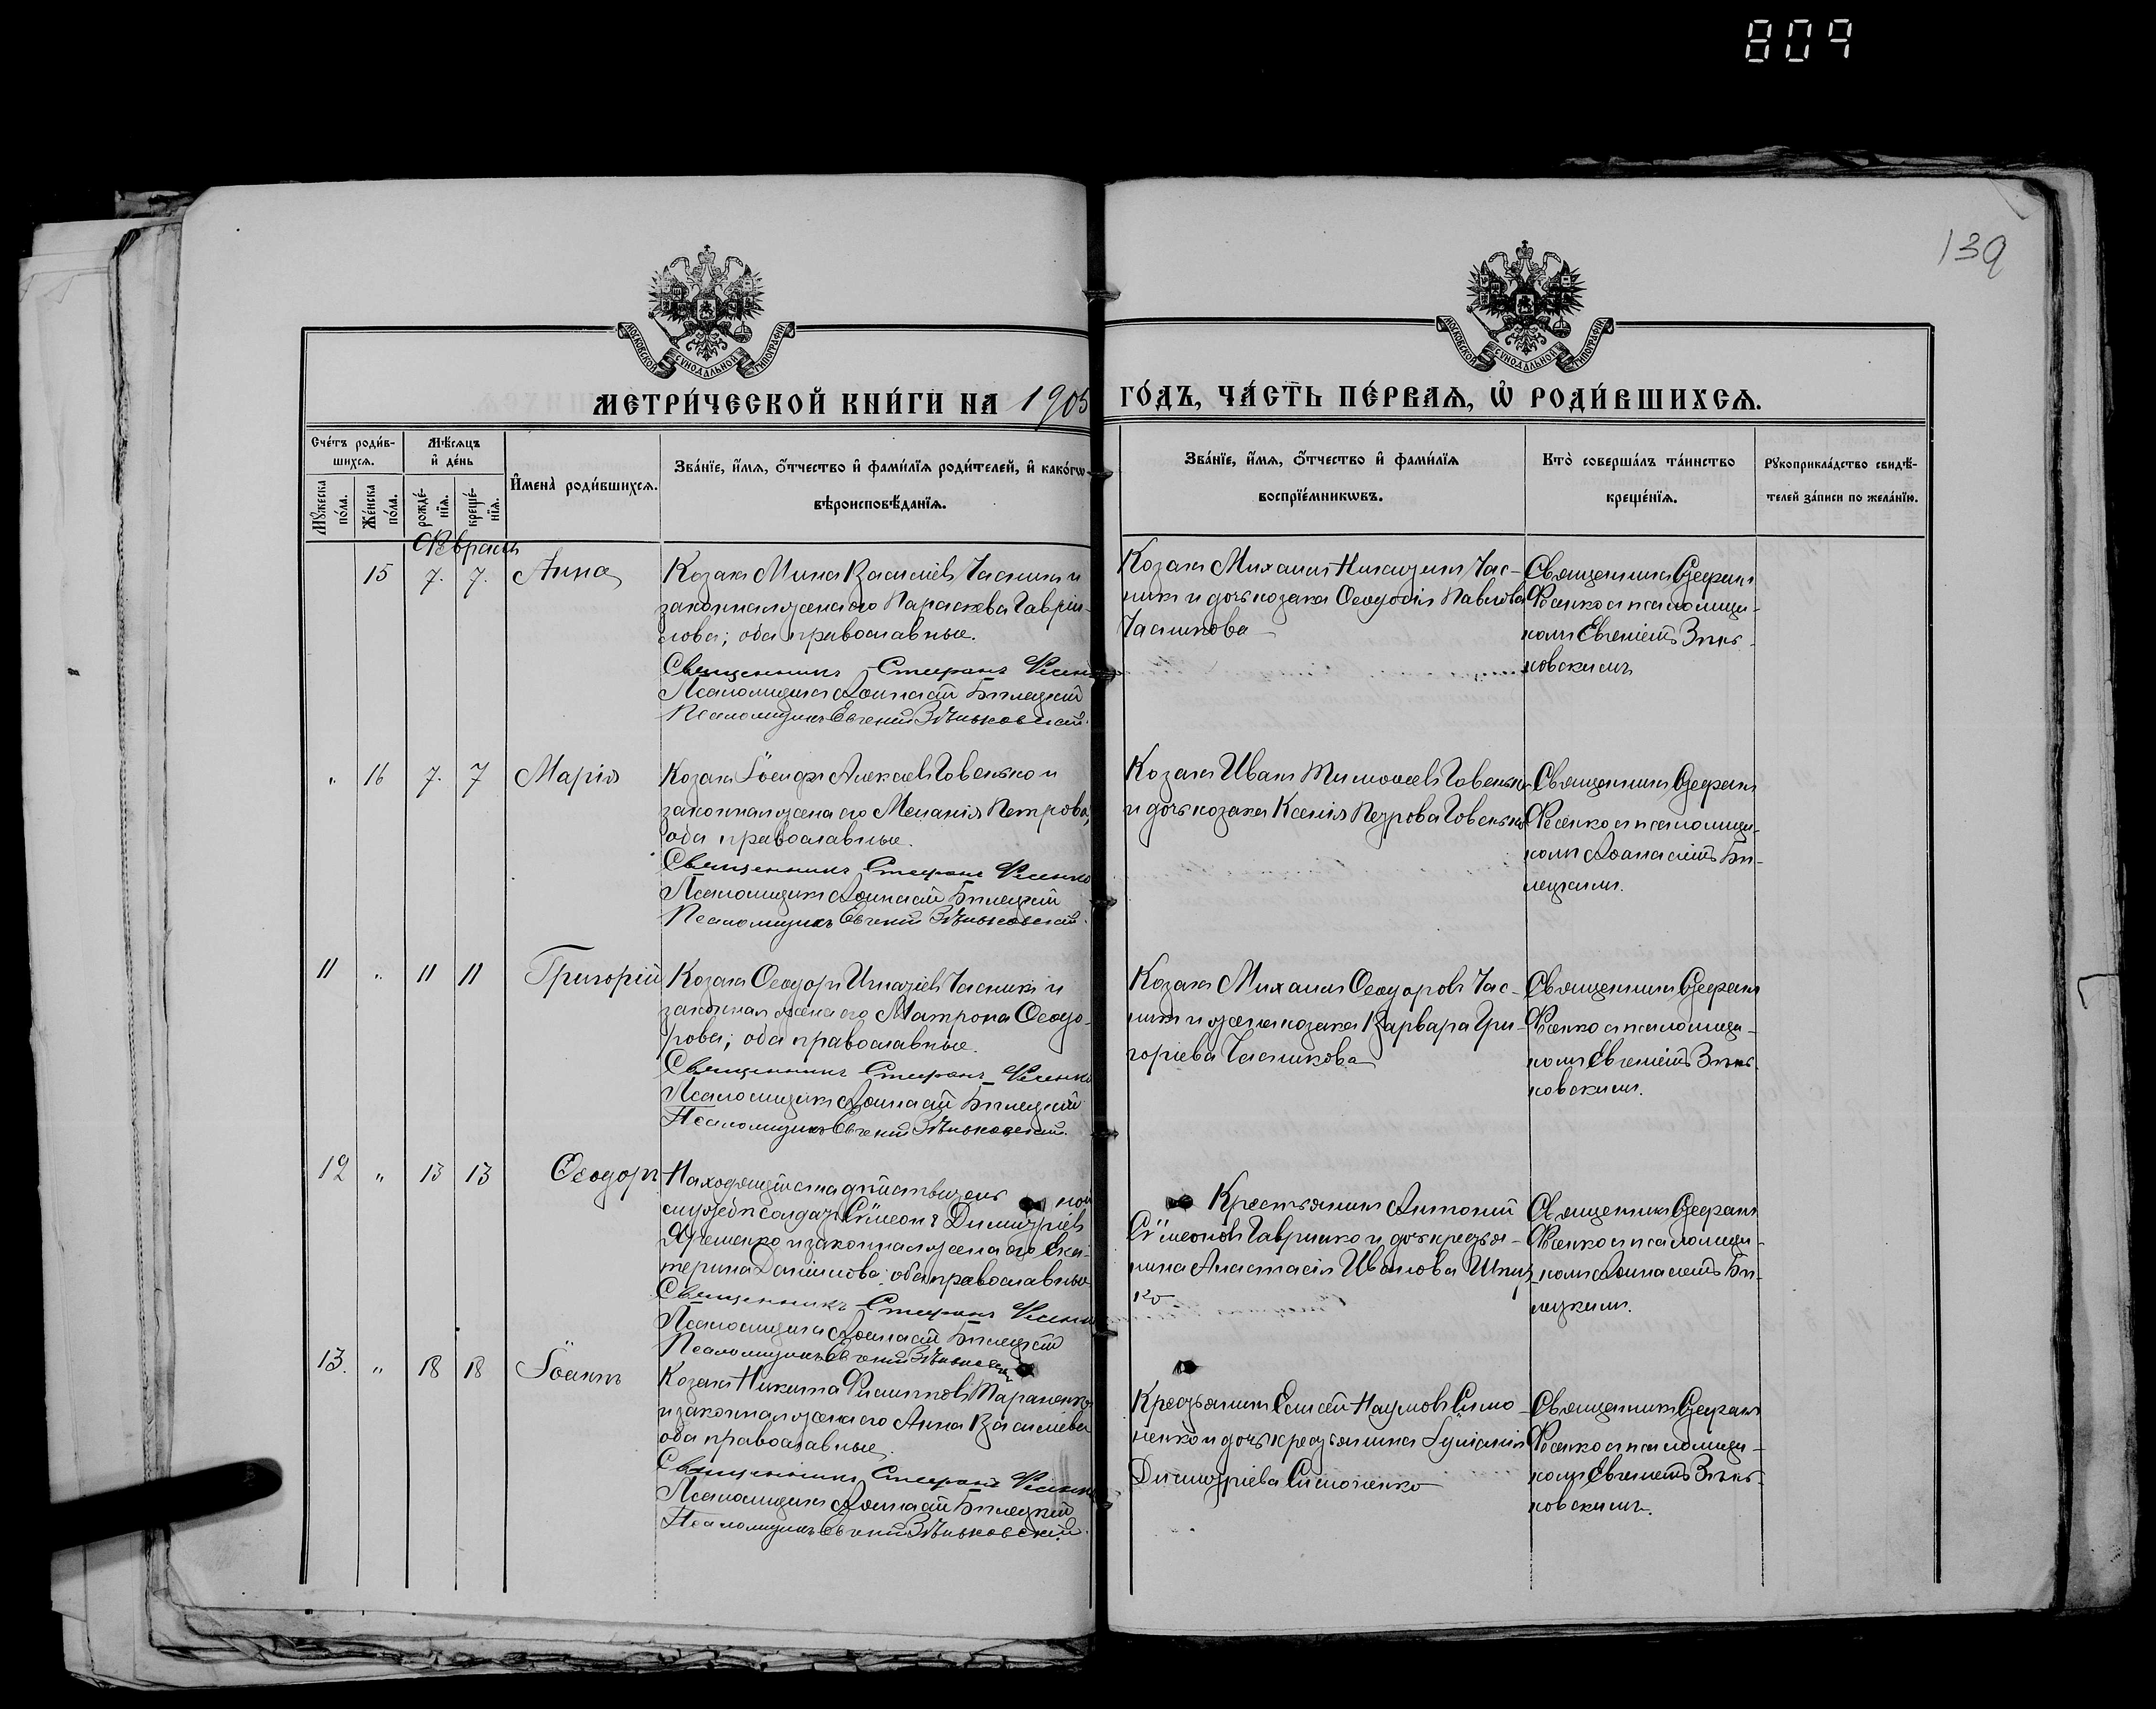 809
139
МОСКОВСКОЙ СѴНОДАЛЬНОЙ ТИПОГРАФІИ
МОСКОВСКОЙ СѴНОДАЛЬНОЙ ТИПОГРАФІИ
МЕТРИ́ЧЕСКОЙ КНИ́ГИ НА 1905
ГО́ДЪ, ЧА́СТЬ ПЕ́РВАѦ, Ѡ҆ РОДИ́ВШИХСѦ.
Сче́тъ роди́вшихсѧ.
Мѣ́сѧцъ и҆ де́нь
И҆мена̀ роди́вшихсѧ.
Зва́нїе, и҆́мѧ, ѻ҆́тчество и҆ фами́лїѧ роди́телей, и҆ како́гѡ
вѣроисповѣ́данїѧ.
Мꙋ́жеска по́ла.
Же́нска по́ла.
рожде́нїѧ.
креще́нїѧ.
Зва́нїе, и҆́мѧ, ѻ҆́тчество и҆ фами́лїѧ
воспрїе́мникѡвъ.
Кто̀ соверша́лъ та́инство
креще́нїѧ.
Рꙋкоприкла́дство свидѣ́-
телей за́писи по жела́нїю.
Февраль
15 7. 7. Анна
Козакъ Мина Васильевъ Часникъ и
законная жена его Параскева Гаврии-
лова; оба православные.
Священникъ Стефанъ Фесенко
Псаломщикъ Аѳанасій Билецкій
Псаломщикъ Евгеній Зѣньковскій.
Козакъ Михаилъ Час-
никъ и дочь козака Ѳеодосія Павлова
Часникова
Священникъ Стефанъ
Фесенко съ псаломщи-
комъ Евгеніемъ Зѣнь-
ковскимъ
" 16 7. 7 Марія
Козакъ Іосифъ Алексѣевъ Говенько и
законная жена его Меланія Петрова,
оба православные.
Священникъ Стефанъ Фесенко
Псаломщикъ Аѳанасій Билецкій
Псаломщикъ Евгеній Зѣньковскій.
Козакъ Иванъ Тимоѳеевъ Говенько
и дочь козака Ксенія Петрова Говенько
Священникъ Стефанъ
Фесенко съ псаломщи-
комъ Аѳанасіемъ Би-
лецкимъ.
11 " 11 11 Григорій
Козакъ Ѳеодоръ Игнатіевъ Часникъ и
законная жена его Матрона Ѳеодо-
рова; оба православные.
Священникъ Стефанъ Фесенко
Псаломщикъ Аѳанасій Билецкій
Псаломщикъ Евгеній Зѣньковскій.
Козакъ Михаилъ Ѳеодоровъ Час-
никъ и жена козака Варвара Гри-
горіева Часникова
Священникъ Стефанъ
Фесенко съ псаломщи-
комъ Евгеніемъ Зѣнь-
ковскимъ.
12 " 13 13 Ѳеодоръ
Находящійся на дѣйствитель ной
службѣ солдатъ Сѵмеонъ Димитріевъ
Яременко и законная жена его Ека-
терина Даніилова; оба православные
Священникъ Стефанъ Фесенко
Псаломщикъ Аѳанасій Билецкій
Псаломщикъ Евгеній
Крестьянинъ Антоній
Сѵмеоновъ Гавришко и дочь кресть-
нина Анастасія Иванова
ко
Священникъ Стефанъ
Фесенко съ псаломщи-
комъ Аѳанасіемъ Би-
лецкимъ.
13. " 18 18 Іоаннъ
Козакъ Никита Филипповъ Тараненко
и законная жена его Анна Василіева
оба православные.
Священникъ Стефанъ Фесенко
Псаломщикъ Аѳанасій Билецкій
Псаломщикъ Евгеній Зѣньковскій.
Крестьянинъ Елисей Наумовъ Симо-
ненко и дочь крестьянина Іуліанія
Димитріева Симоненко
Священникъ Стефанъ
Фесенко съ псаломщи-
комъ Евгеніемъ Зѣнь-
ковскимъ.